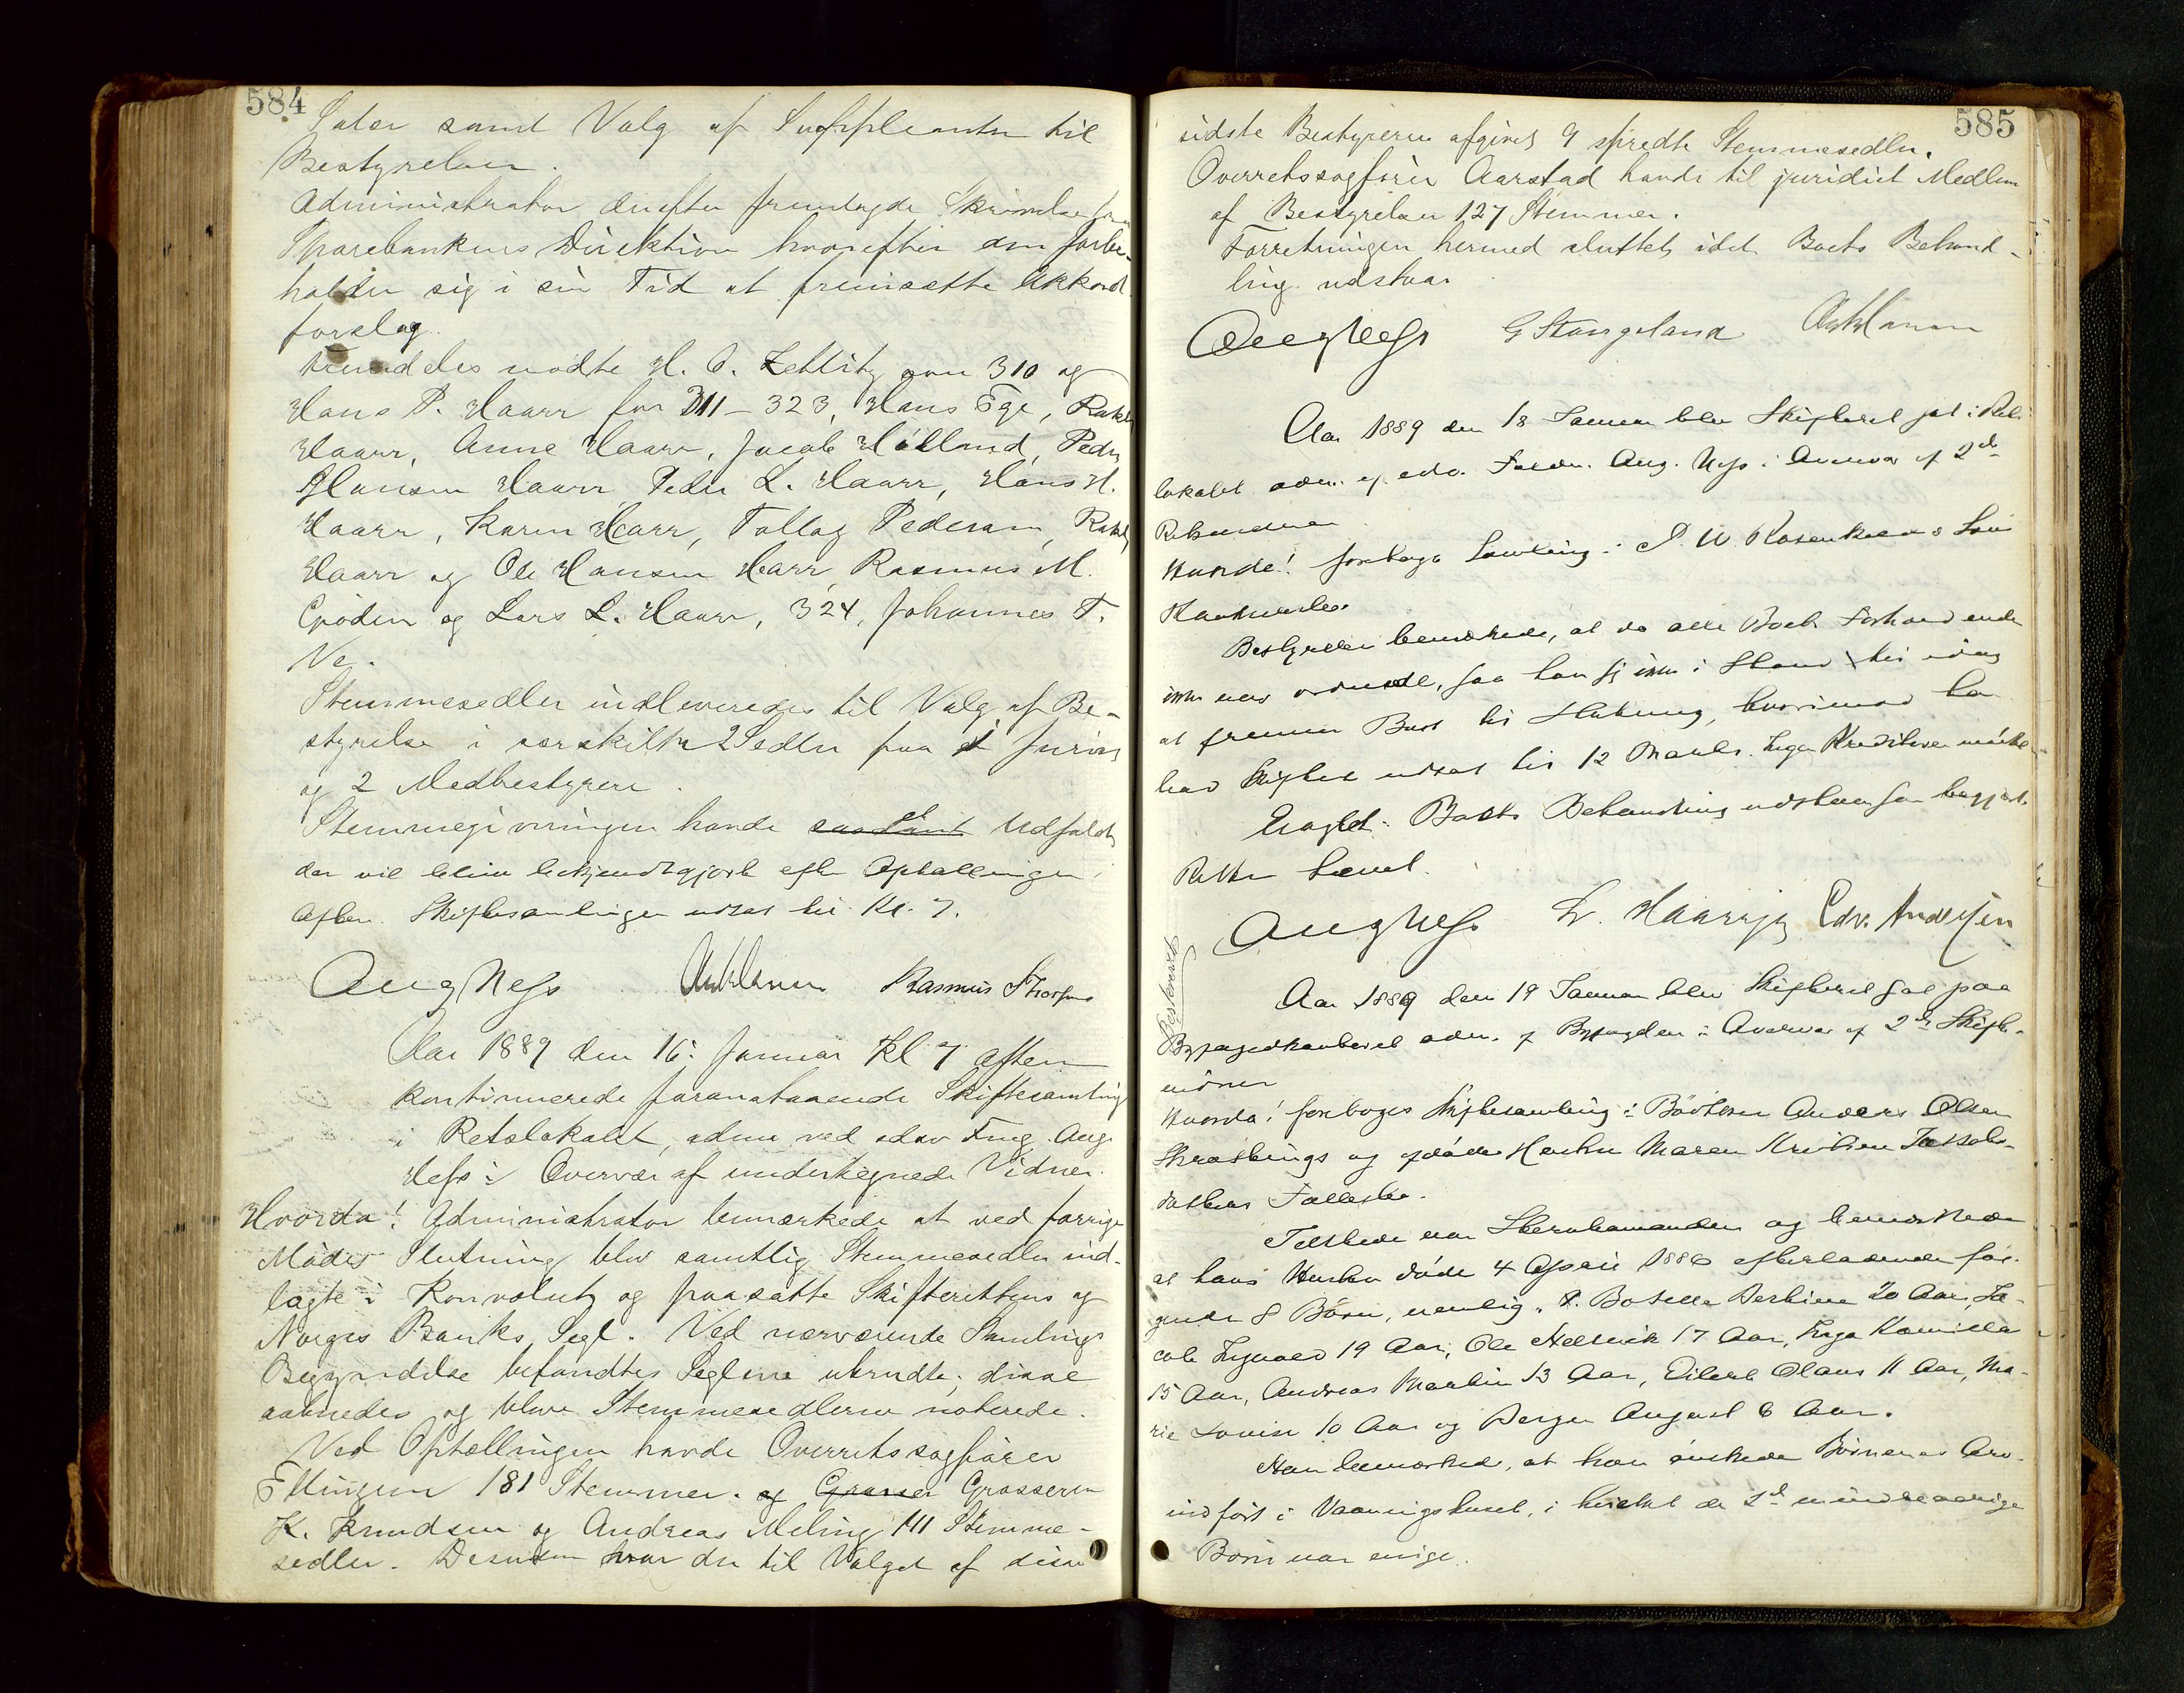 584
samt Valg af Suppleanter til
Bestyrelsen.
Administrator derefter fremlagde Skrivelse fra
Sparebankens Direktion hvorefter den forbe-
holder sig i sin Tid at fremsætte Akkord
forslag.
Fremdeles mødte H. O. Zetlitz 310 og
Hans P. Haarr for 311-323, Hans Ege,
Haarr, Anne Haarr, Jacob Peder
Hansen Haarr Peder L. Haarr, Hans H.
Haarr, Karen Harr, Tollag Pedersen,
Haarr og Ole Hansen Harr, Rasmus M.
og Lars L. Haarr, 324, Johannes T.
Ve.
Stemmesedler indleveredes til Valg af Be-
styrelse i særskilte 2 Sedler paa 1 Jurist
og 2 Medbestyrere.
Stemmegivningen havde et Udfald
der vil blive bekjendtgjort efter Optællingen i
Aften. Skiftesamlingen udsat til Kl. 7.
Aug Ness Rasmus
Aar 1889 den 16. Januar Kl 7 aften
kontinuerede foranstaaende Skiftesamling
i Retslokalet, adm ved edsv Fmg. Aug.
Ness i Overvær af undertegnede Vidner.
Hvorda! Administrator bemærkede at ved forrige
Mødes Slutning blev samtlig Stemmesedler ind-
lagte i Konvolut og paasatte Skifterettens og
Norges Banks Segl. Ved nærværende Samlings
Begyndelse befandtes Seglene ubrudte; disse
aabnedes og blev Stemmesedlerne noterede.
Ved Optællingen havde Overretssagfører
Ellingsen 181 Stemmer. og Grosser Grosserer
K. Knudsen og Andreas Meling 141 Stemme-
sedler. Desuden var der til Valget af disse
585
sidste Bestyrere afgivet 9 spredte Stemmesedler.
Overretssagfører Aarstad havde til juridisk Medlem
af Bestyrelsen 127 Stemmer.
Forretningen hermed sluttet, idet Boets Behand-
ling udstaar.
Aug Ness G Stangeland
Aar 1889 den 18 Januar blev Skifteret sat i Rets
lokalet adm. af edsv. Fuldm. Aug. Ness i Overvær af 2de
Retsvidner
Hvorda! foretages Samling i P. W. Rosenkilde & Søn
Bestyrelsen bemærkede, at da alle Boets Forhold endnu
ikke var ordnede, saa han sig ikke i Stand til idag
at fremme Boet til Slutning, hvorimod han
bad Skiftet udsat til 12 Marts. Ingen Kreditorer mødte
Eragtet: Boets Behandling udstaar som begjært.
Retten hævet.
Aug Ness L. Haarsje Edv. Andersen
Aar 1889 den 19 Januar blev Skifteret sat paa
Byfogedkontoret adm. af Byfogden i Overvær af 2de Skifte-
vidner
Hvorda! foretages Skiftesamling i Bødker Anders Olsen
og afdøde Hustru Maren Kristine Jakobs-
datters Fællesbo.
Tilstede var Sterbomanden og bemærkede
at hans Hustru døde 4 April 1886 efterladende føl-
gende 8 Børn, nemlig: 1. Botella Serbine 20 Aar, Ja-
cob Ingvald 19 Aar, Ole Hellerik 17 Aar, Inga Kamilla
15 Aar, Andreas Martin 13 Aar, Eilert Olaus 11 Aar, Ma-
rie Lovise 10 Aar og Berger August 6 Aar.
Han bemærked, at han ønskede Børnenes Arv
indført i Vaaningshuset, i hvilket de 2de mindreaarige
Børn var enige.